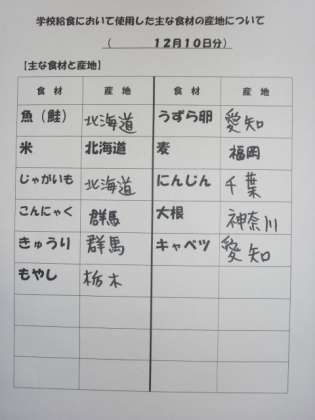 学校給食において使用した主な食材の産地について
（　　　12月10日分）
【主な食材と産地】
食 材 産 地 食 材 産 地
魚（鮭） 北海道 うずら卵 愛知
米 北海道 麦 福岡
じゃがいも 北海道 にんじん 千葉
こんにゃく 群馬 大根 神奈川
きゅうり 群馬 キャベツ 愛知
もやし 栃木